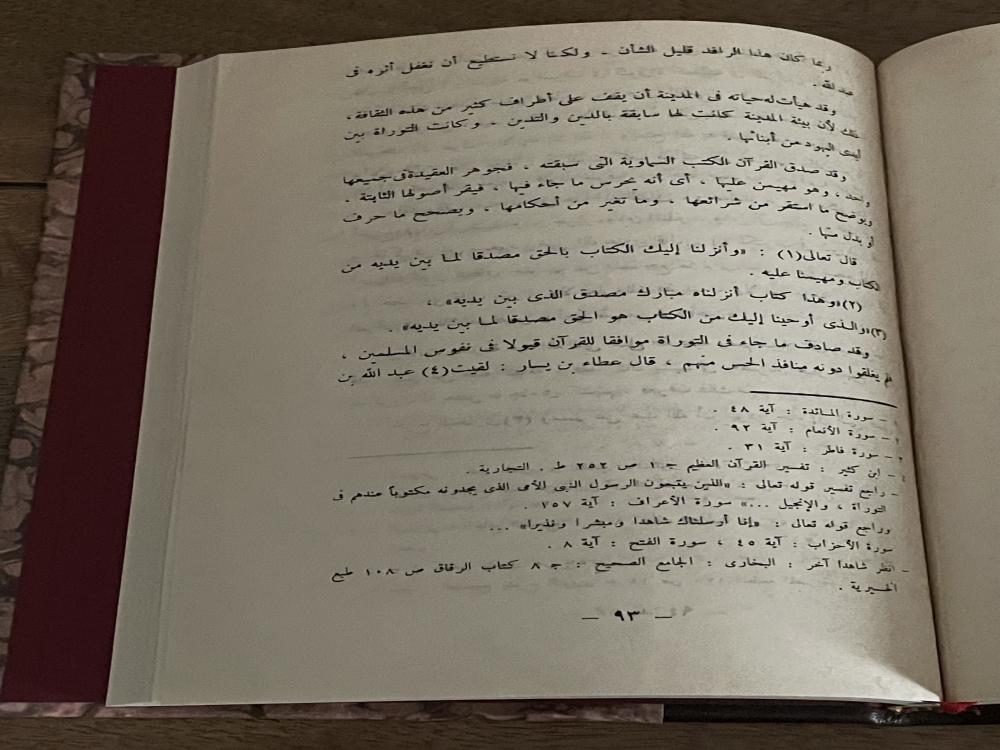 ربما كان هذا الرافد قليل الشأن ، ولكنا لا نستطيع أن نغفل أثره فى
عبد الله .
وقد هيأت له حياته فى المدينة أن يقف على أطراف كثير من هذه الثقافة ،
ذلك لأن بيئة المدينة كانت لها سابقة بالدين والتدين ، وكانت التوراة بين
أيدى اليهود من أبنائها .
وقد صدق القرآن الكتب السماوية التى سبقته ، فجوهر العقيدة فى جميعها
واحد ، وهو مهيمن عليها ، أى أنه يحرس ما جاء فيها ، فيقر أصولها الثابتة ،
ويوضح ما استقر من شرائعها ، وما تغير من أحكامها ، ويصحح ما حرف
أو بدل منها .
قال تعالى(١) : «وأنزلنا إليك الكتاب بالحق مصدقا لما بين يديه من
الكتاب ومهيمنا عليه .
(٢)«وهذا كتاب أنزلناه مبارك مصدق الذى بين يديه» ،
(٣)«والذى أوحينا إليك من الكتاب هو الحق مصدقا لما بين يديه» .
وقد صادف ما جاء فى التوراة موافقا للقرآن قبولا فى نفوس المسلمين ،
فلم يغلقوا دونه منافذ الحس منهم ، قال عطاء بن يسار : لقيت(٤) عبد الله بن
١ – سورة المائدة : آية ٤٨ .
٢ – سورة الأنعام : آية ٩٢ .
٣ – سورة فاطر : آية ٣١ .
٤ – ابن كثير : تفسير القرآن العظيم ج ١ ص ٢٥٢ ط . التجارية .
– راجع تفسير قوله تعالى : «الذين يتبعون الرسول النبى الأمى الذى يجدونه مكتوباً عندهم فى
التوراة ، والإنجيل ...» سورة الأعراف : آية ١٥٧ .
وراجع قوله تعالى : «إنا أرسلناك شاهدا ومبشرا ونذيرا» ...
سورة الأحزاب : آية ٤٥ ، سورة الفتح : آية ٨ .
– انظر شاهدا آخر : البخارى : الجامع الصحيح : ج ٨ كتاب الرقاق ص ١٠٨ طبع
الخيرية .
— ٩٣ —